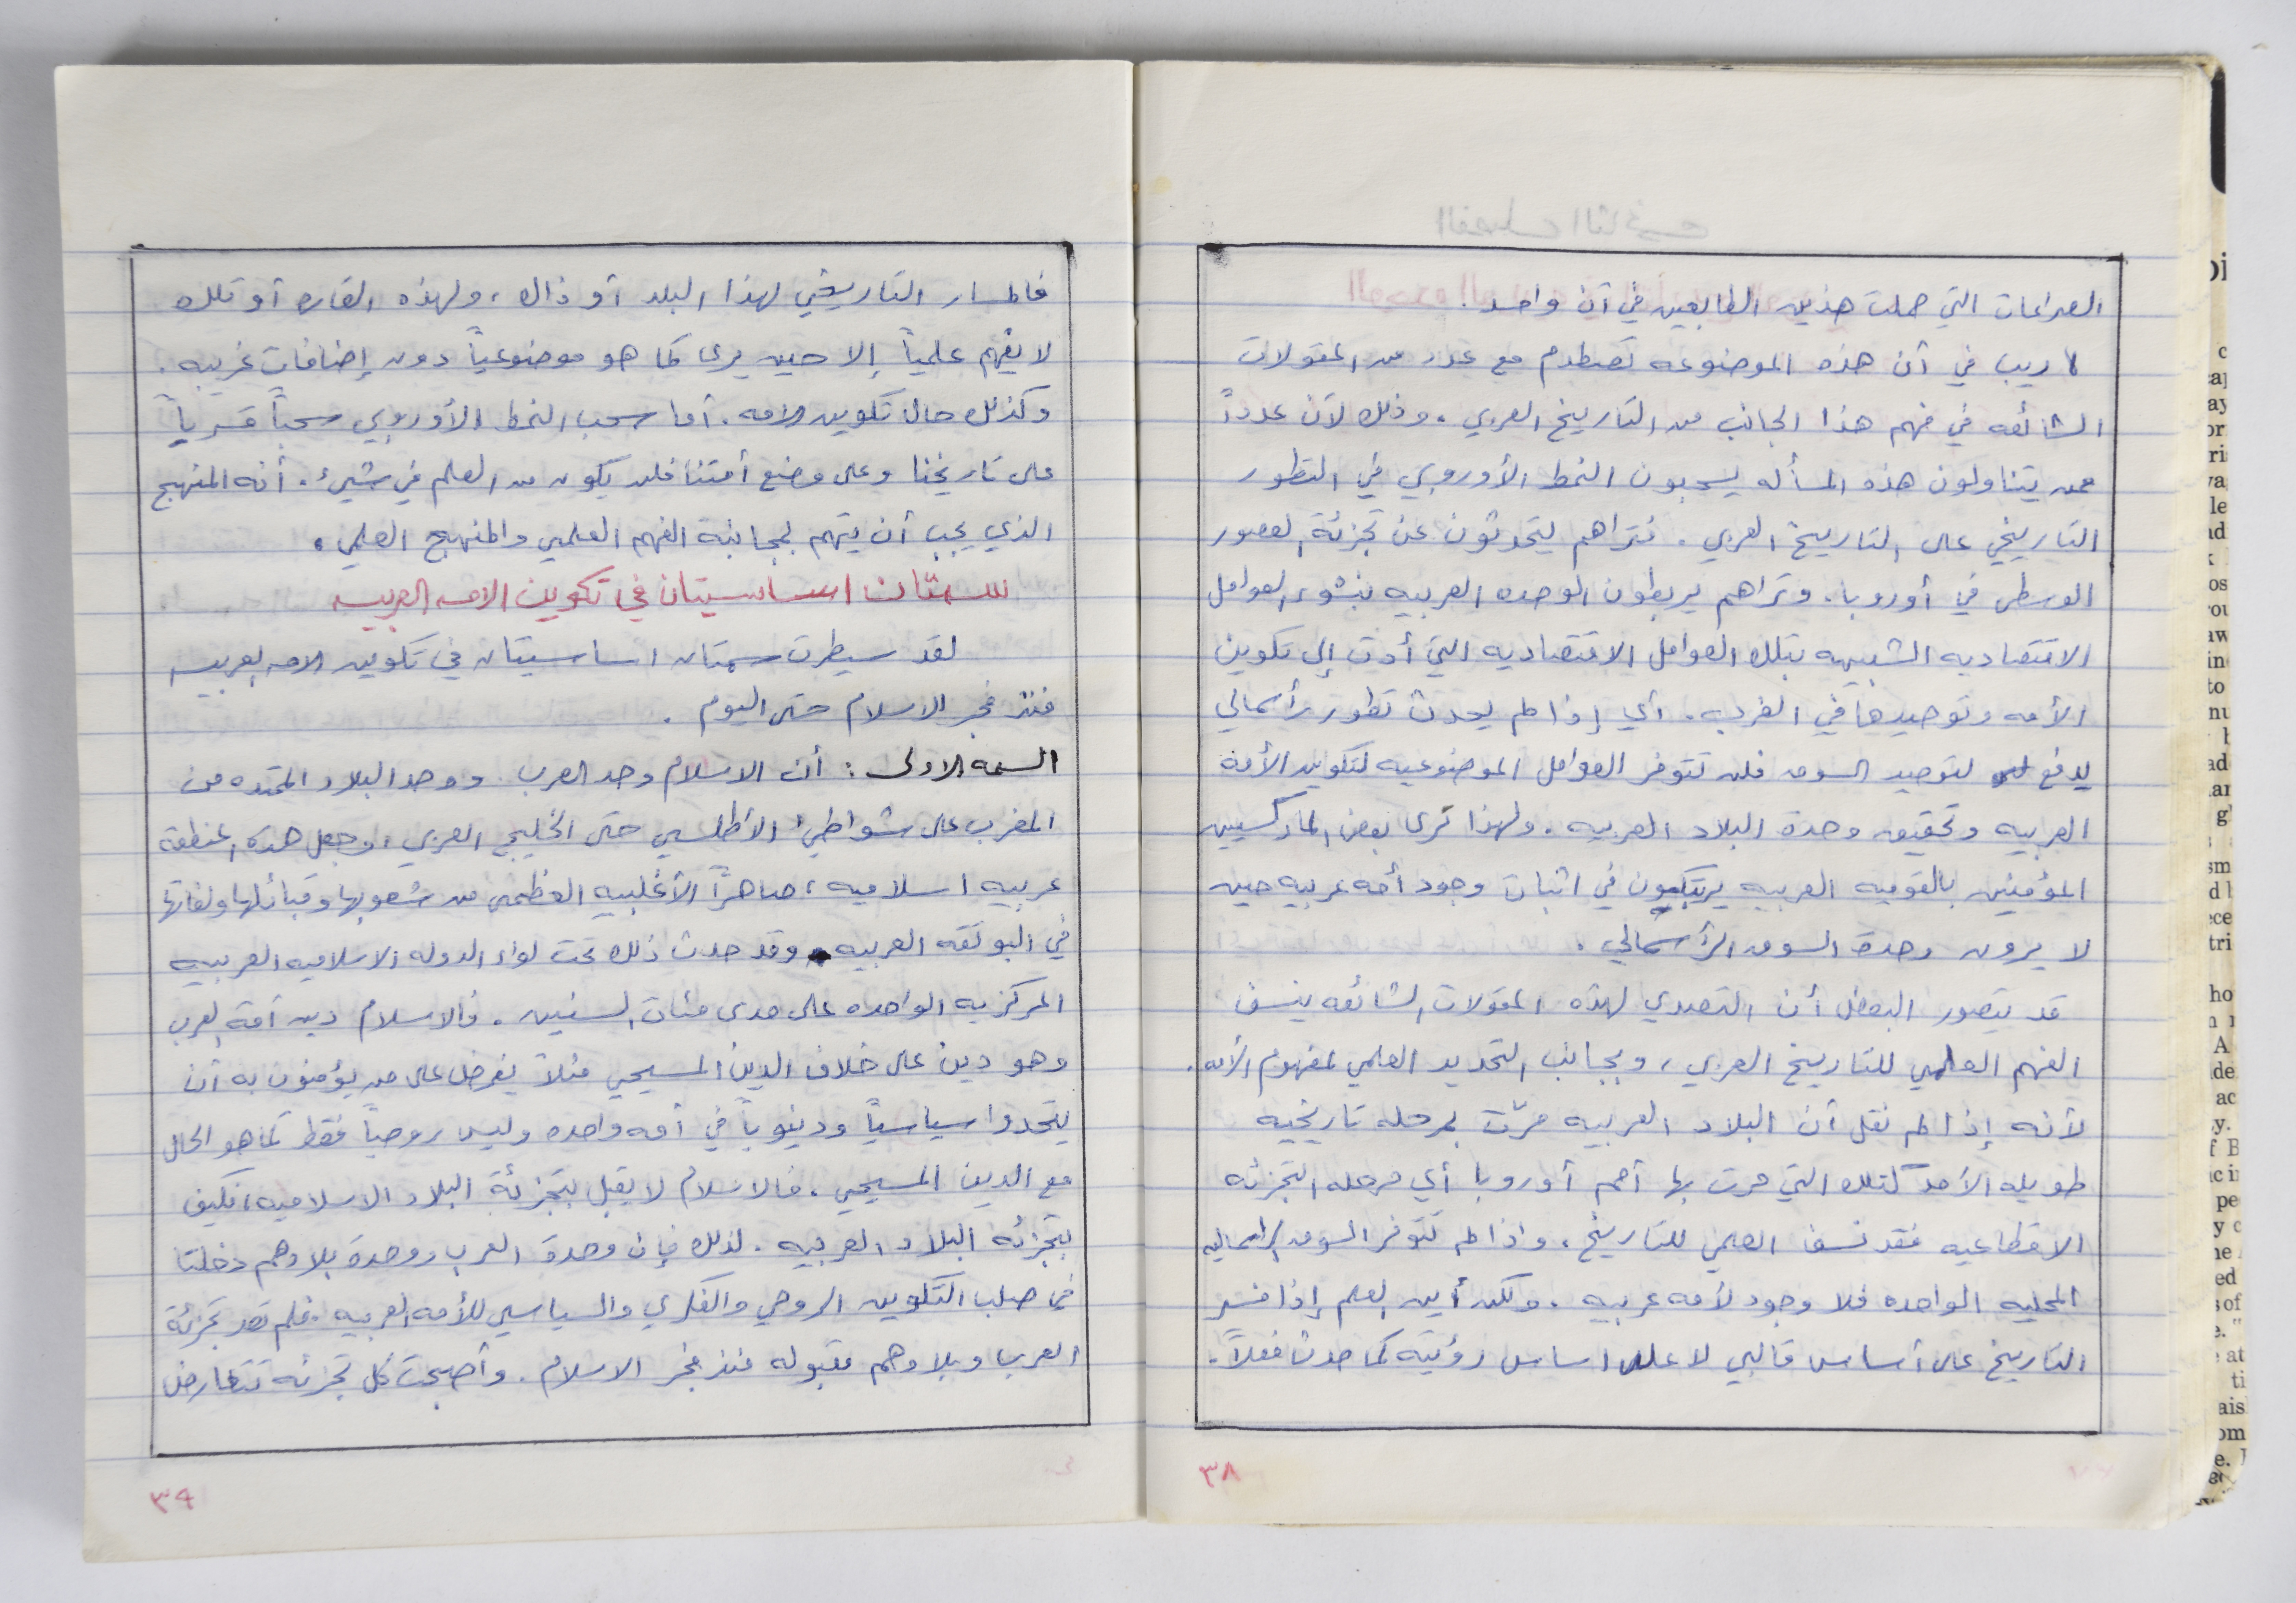 الصراعات التي حملت هذين الطابعين في آن واحد.
لا ريب في أن هذه الموضوعه تصطدم مع عدد من المقولات
الشائعه في فهم هذا الجانب من التاريخ العربي. وذلك لأن عدداً
ممن يتناولون هذه المسأله يسحبون النمط الأوروبي في التطور
التاريخي على التاريخ العربي. فتراهم يتحدثون عن تجزئة العصور
الوسطى في أوروبا. وتراهم يربطون الوحده العربيه بنشوء العوامل
الاقتصاديه الشبيهه بتلك العوامل الاقتصاديه التي أدت إلى تكوين
الأمه وتوحيدها في الغرب. أي إذا لم يحدث تطور رأسمالي
يدفع لتوحيد السوق فلن تتوفر العوامل الموضوعيه لتكوين الأمة
العربيه وتحقيق وحدة البلاد العربيه. ولهذا ترى بعض الماركسيين
المؤمنين بالقوميه العربيه يرتبكون في اثبات وجود أمه عربيه حين
لا يرون وحدة السوق الرأسمالي.
قد يتصور البعض أن التصدي لهذه المقولات الشائعه ينسف
الفهم العلمي للتاريخ العربي، ويجانب التحديد العلمي لمفهوم الأمه.
لأنه إذا لم نقل أن البلاد العربيه مرّت بمرحله تاريخيه
طويله الأمد كتلك التي مرت بها أمم أوروبا أي مرحله التجزئه
الاقطاعيه فقد نسف العلمي للتاريخ، واذا لم تتوفر السوق الرأسماليه
المحليه الواحده فلا وجود لأمه عربيه. ولكن أين العلم إذا فسر
التاريخ على أساس قالبي لا على اساس رؤيته كما حدث فعلاً.
٣٨
فالمسار التاريخي لهذا البلد أو ذاك، ولهذه القاره أو تلك
لا يفهم علمياً إلا حين يرى كما هو موضوعياً دون إضافات غريبه.
وكذلك حال تكوين الامه. أما سحب النمط الأوروبي سحباً قسرياً
على تاريخنا وعلى وضع أمتنا فلن يكون من العلم في شيئ. أنه المنهج
الذي يجب أن يتهم بمجانبة الفهم العلمي والمنهج العلمي.
سمتان اساسيتان في تكوين الامه العربيه
لقد سيطرت سمتان اساسيتان في تكوين الامه العربيه
منذ فجر الاسلام حتى اليوم.
السمه الاولى: أن الاسلام وحد العرب ووحد البلاد الممتده من
المغرب على شواطئ الأطلسي حتى الخليج العربي، وجعل هذه المنطقة
عربيه اسلاميه، صاهراً الأغلبيه العظمى من شعوبها وقبائلها ولغاتها
في البوتقه العربيه وقد حدث ذلك تحت لواء الدوله الاسلاميه العربيه
المركزيه الواحده على مدى مئات السنين. فالاسلام دين أمة العرب
وهو دين على خلاف الدين المسيحي مثلاً يفرض على من يؤمنون به أن
يتحدوا سياسياً ودنيوياً في أمه واحده وليس روحياً فقط كما هو الحال
مع الدين المسيحي. فالاسلام لا يقبل بتجزئة البلاد الاسلاميه، فكيف
بتجزئه البلاد العربيه. لذلك فإن وحدة العرب ووحدة بلادهم دخلتا
في صلب التكوين الروحي والفكري والسياسي للأمه العربيه. فلم تعد تجزئة
العرب وبلادهم مقبوله منذ فجر الاسلام. وأصبحت كل تجزئه تتعارض
٣٩